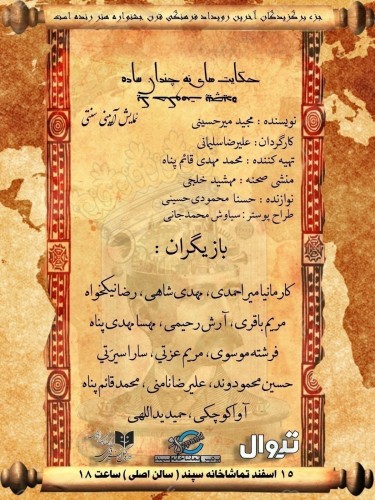 جزء برگزیدگان آخرین رویداد فرهنگی قرن جشنواره هنر زنده است
حکایت های نه چندان ساده
نویسنده : مجید میرحسینی
نمایش آیینی سنتی
کارگردان : علیرضا سلیمانی
تهیه کننده : محمد مهدی قائم پناه
منشی صحنه : مهشید خلجی
نوازنده : حسنا محمودی حسینی
طراح پوستر : سیاوش محمدجانی
بازیگران :
کارمانیا میراحمدی، مهدی شاهی، رضا نیکخواه
مریم باقری، آرش رحیمی، مهسا مهدی پناه
فرشته موسوی، مریم عزتی، سارا سیرتی
حسین محمودوند، علیرضا نامنی، محمد قائم پناه
آوا کوچکی، حمید یداللهی
تیوال
۱۵ اسفند تماشاخانه سپند ( سالن اصلی ) ساعت ۱۸